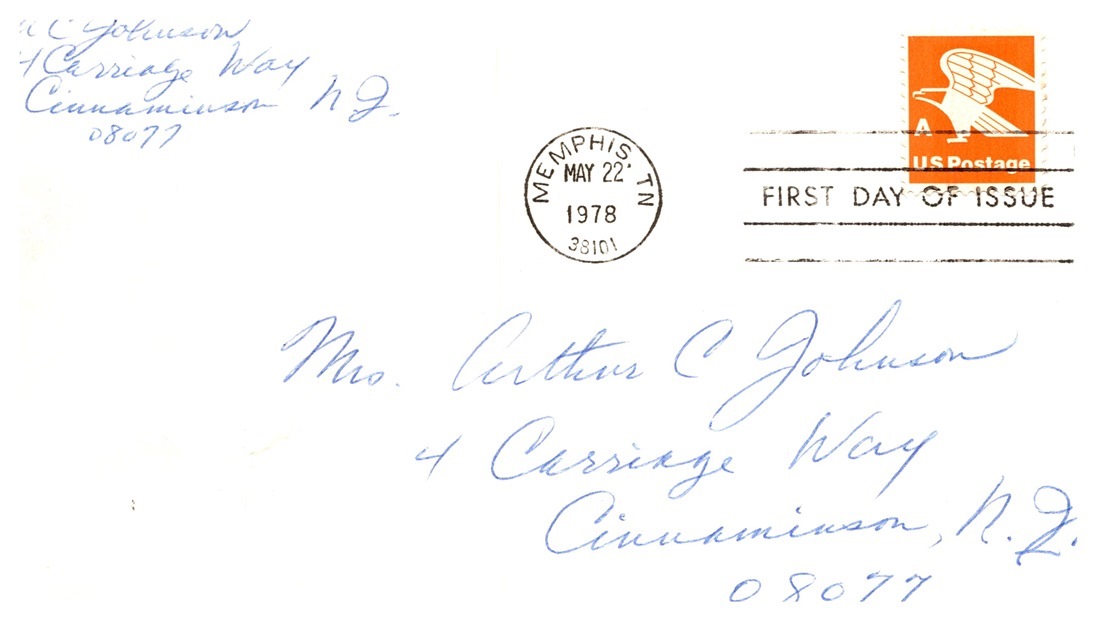 C Johnson
4 Carriage Way
Cinnaminson N J.
08077
A
U.S. Postage
MEMPHIS, TN
MAY 22
1978
38101
FIRST DAY OF ISSUE
Mrs. Arthur C Johnson
4 Carriage Way
Cinnaminson, N. J.
08077